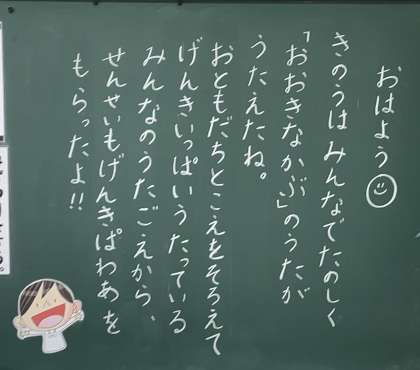 おはよう
きのうはみんなでたのしく
「おおきなかぶ」のうたが
うたえたね。
おともだちとこえをそろえて
げんきいっぱいうたっている
みんなのうたごえから、
せんせいもげんきぱわあを
もらったよ!!